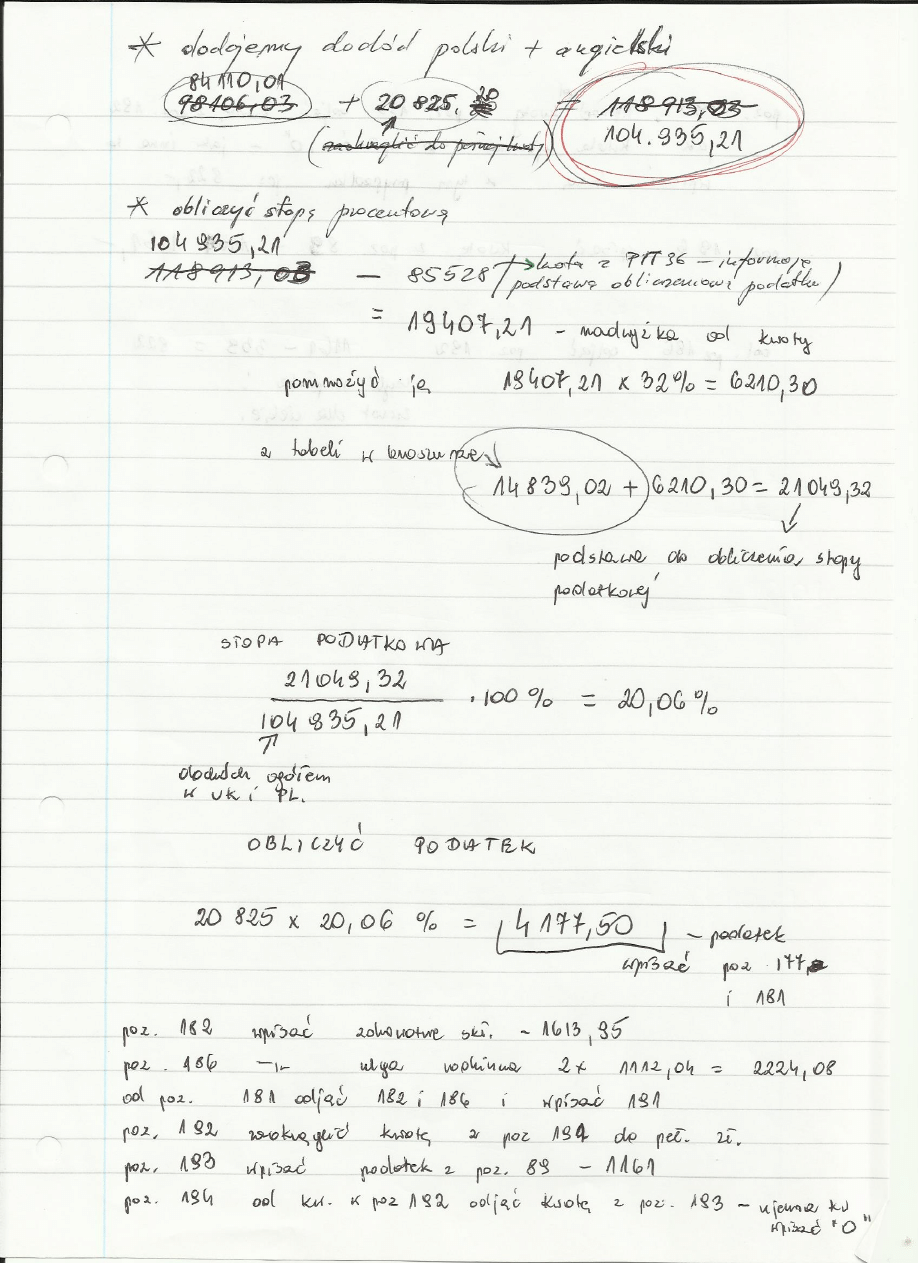 * dodajemy dochód polski + angielski
84110,01
98106,03 + 20 825.20 = 118 913,03
104.935,21
(zaokrąglić do pełnej kwoty)
* obliczyć stopę procentową
104 935,21
118 913,03 - 85528 (→ kwota z PIT 36 - informacja
podstawa obliczeniowa podatku)
= 19407,21 - nadwyżka od kwoty
pomnożyć ją 19407,21 x 32% = 6210,30
z tabeli w broszurze
14 839,02 + 6210,30 = 21049,32
podstawa do obliczenia stopy
podatkowej
STOPA PODATKOWA
21049,32
104 935,21 · 100 % = 20,06 %
dochód ogółem
w UK i PL.
OBLICZYĆ PODATEK
20 825 x 20,06 % = 4177,50 - podatek
wpisać poz 177
i 181
poz. 182 wpisać zdrowotne skł. - 1613,95
poz. 186 -"- ulga rodzinna 2x 1112,04 = 2224,08
od poz. 181 odjąć 182 i 186 i wpisać 191
poz. 192 zaokrąglić kwotę z poz 191 do peł. zł.
poz. 193 wpisać podatek z poz. 89 - 1161
poz. 194 od kw. w poz 192 odjąć kwotę z poz. 193 - ujemna kw
wpisać "0"